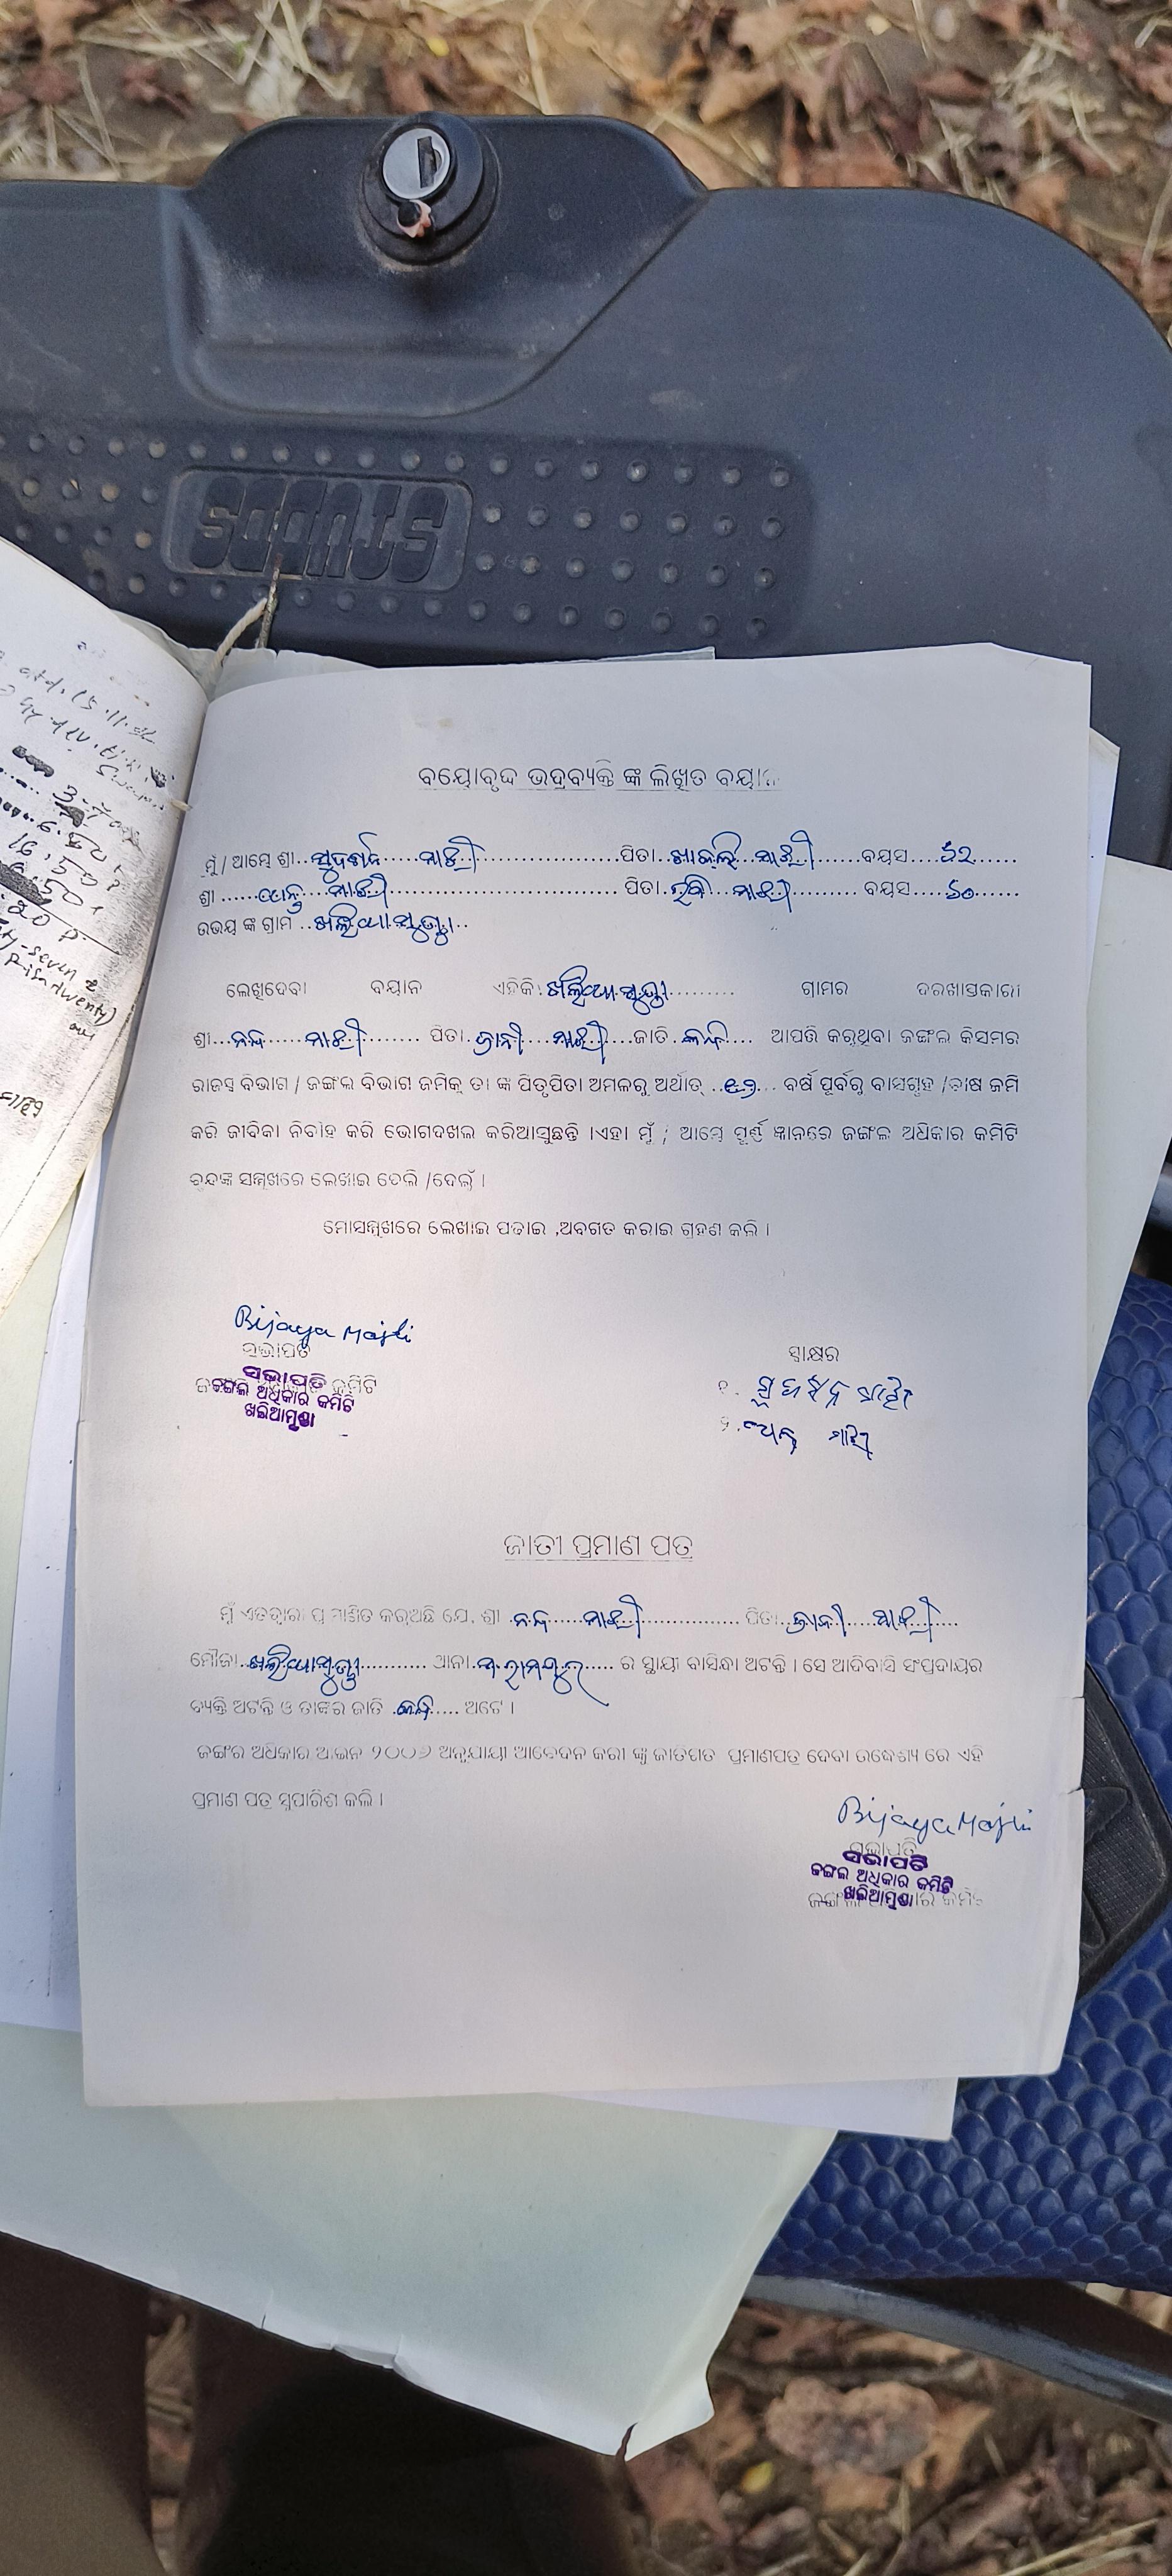 STUDDS
ବୟୋବୃଦ୍ଧ ଭଦ୍ରବ୍ୟକ୍ତି ଙ୍କ ଲିଖିତ ବୟାନ
ମୁଁ / ଆମ୍ଭେ ଶ୍ରୀ.. ସୁଦର୍ଶନ ..... ମାଝୀ ..............................ପିତା.. ମାଝୀ ...... ବୟସ.... ୬୨......
ଶ୍ରୀ ...... ମାଝୀ.................................. ପିତା.. ରବି ମାଝୀ ......... ବୟସ.....୬୦.......
ଉଭୟ ଙ୍କ ଗ୍ରାମ ..ଖଲିଆମୁଣ୍ଡା..
ଲେଖିଦେବା ବୟାନ ଏହିକି.ଖଲିଆମୁଣ୍ଡା......... ଗ୍ରାମର ଦରଖାସ୍ତକାରୀ
ଶ୍ରୀ...ନନ୍ଦ...... ମାଝୀ........ ପିତା. ମାଝୀ....ଜାତି. କନ୍ଧ.... ଆପତ୍ତି କରୁଥିବା ଜଙ୍ଗଲ କିସମର
ରାଜସ୍ୱ ବିଭାଗ / ଜଙ୍ଗଲ ବିଭାଗ ଜମିକୁ ତା ଙ୍କ ପିତୃପିତା ଅମଳରୁ ଅର୍ଥାତ୍ ... ବର୍ଷ ପୂର୍ବରୁ ବାସଗୃହ /ଚାଷ ଜମି
କରି ଜୀବିକା ନିର୍ବାହ କରି ଭୋଗଦଖଲ କରିଆସୁଛନ୍ତି ।ଏହା ମୁଁ / ଆମ୍ଭେ ପୂର୍ଣ୍ଣ ଜ୍ଞାନରେ ଜଙ୍ଗଳ ଅଧିକାର କମିଟି
ବୃନ୍ଦଙ୍କ ସମ୍ମୁଖରେ ଲେଖାଇ ଦେଲି /ଦେଲୁଁ ।
ମୋସମ୍ମୁଖରେ ଲେଖାଇ ପଢାଇ ,ଅବଗତ କରାଇ ଗ୍ରହଣ କଲି ।
Bijaya Majhi
ସଭାପତି
ସଭାପତି
ଜଙ୍ଗଲ ଅଧିକାର କମିଟି
ଖଲିଆମୁଣ୍ଡା
ସ୍ୱାକ୍ଷର
୧.
୨.
ଜାତୀ ପ୍ରମାଣ ପତ୍ର
ମୁଁ ଏତଦ୍ୱାରା ପ୍ରମାଣିତ କରୁଅଛି ଯେ, ଶ୍ରୀ .ନନ୍ଦ..... ମାଝୀ.................. ପିତା.. ମାଝୀ....
ମୌଜା..ଖଲିଆମୁଣ୍ଡା............ ଥାନା. ...... ର ସ୍ଥାୟୀ ବାସିନ୍ଦା ଅଟନ୍ତି । ସେ ଆଦିବାସି ସଂପ୍ରଦାୟର
ବ୍ୟକ୍ତି ଅଟନ୍ତି ଓ ତାଙ୍କର ଜାତି .କନ୍ଧ..... ଅଟେ ।
ଜଙ୍ଗର ଅଧିକାର ଆଇନ ୨୦୦୬ ଅନୁଯାୟୀ ଆବେଦନ କରୀ ଙ୍କୁ ଜାତିଗତ ପ୍ରମାଣପତ୍ର ଦେବା ଉଦ୍ଧେଶ୍ୟ ରେ ଏହି
ପ୍ରମାଣ ପତ୍ର ସୁପାରିଶ କଲି ।
Bijaya Majhi
ସଭାପତି
ସଭାପତି
ଜଙ୍ଗଲ ଅଧିକାର କମିଟି
ଖଲିଆମୁଣ୍ଡା